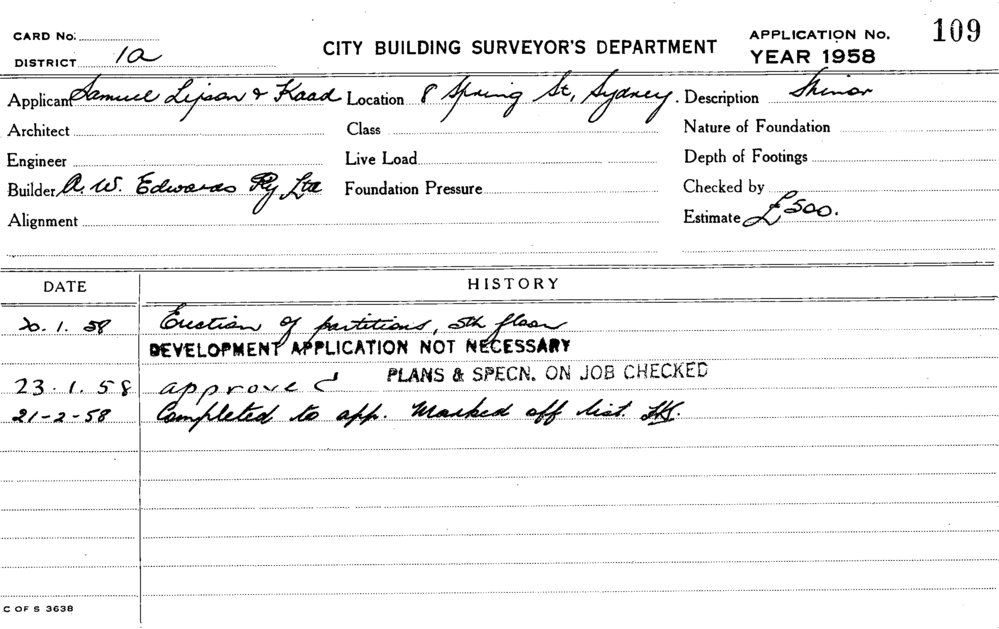 CARD No:
CITY BUILDING SURVEYOR'S DEPARTMENT
APPLICATION No. 109
DISTRICT 1a
YEAR 1958
Applicant Samuel Lipson & Kaad Location 8 Spring St, Sydney. Description
Architect Class Nature of Foundation
Engineer Live Load Depth of Footings
Builder A. W. Edwards Pty Ltd Foundation Pressure Checked by
Alignment Estimate £500.
DATE HISTORY
20. 1. 58 Erection of partitions, 5th floor
DEVELOPMENT APPLICATION NOT NECESSARY
23. 1. 58 approved PLANS & SPECN. ON JOB CHECKED
21-2-58 Completed to app. Marked off list.
C OF S 3638